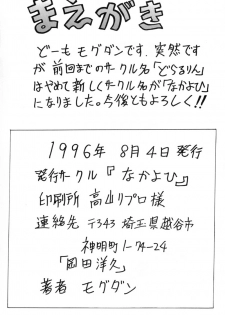 まえがき
どーも モグダンです. 突然です
が 前回までのサークル名「どらるりん」
はやめて新しくサークル名が「なかよひ」
になりました。今後ともよろしく!!
1996年 8月4日 発行
発行サークル『なかよひ』
印刷所 高山リプロ様
連絡先 〒343 埼玉県越谷市
神明町1-74-24
「岡田洋久」
著者 モグダン